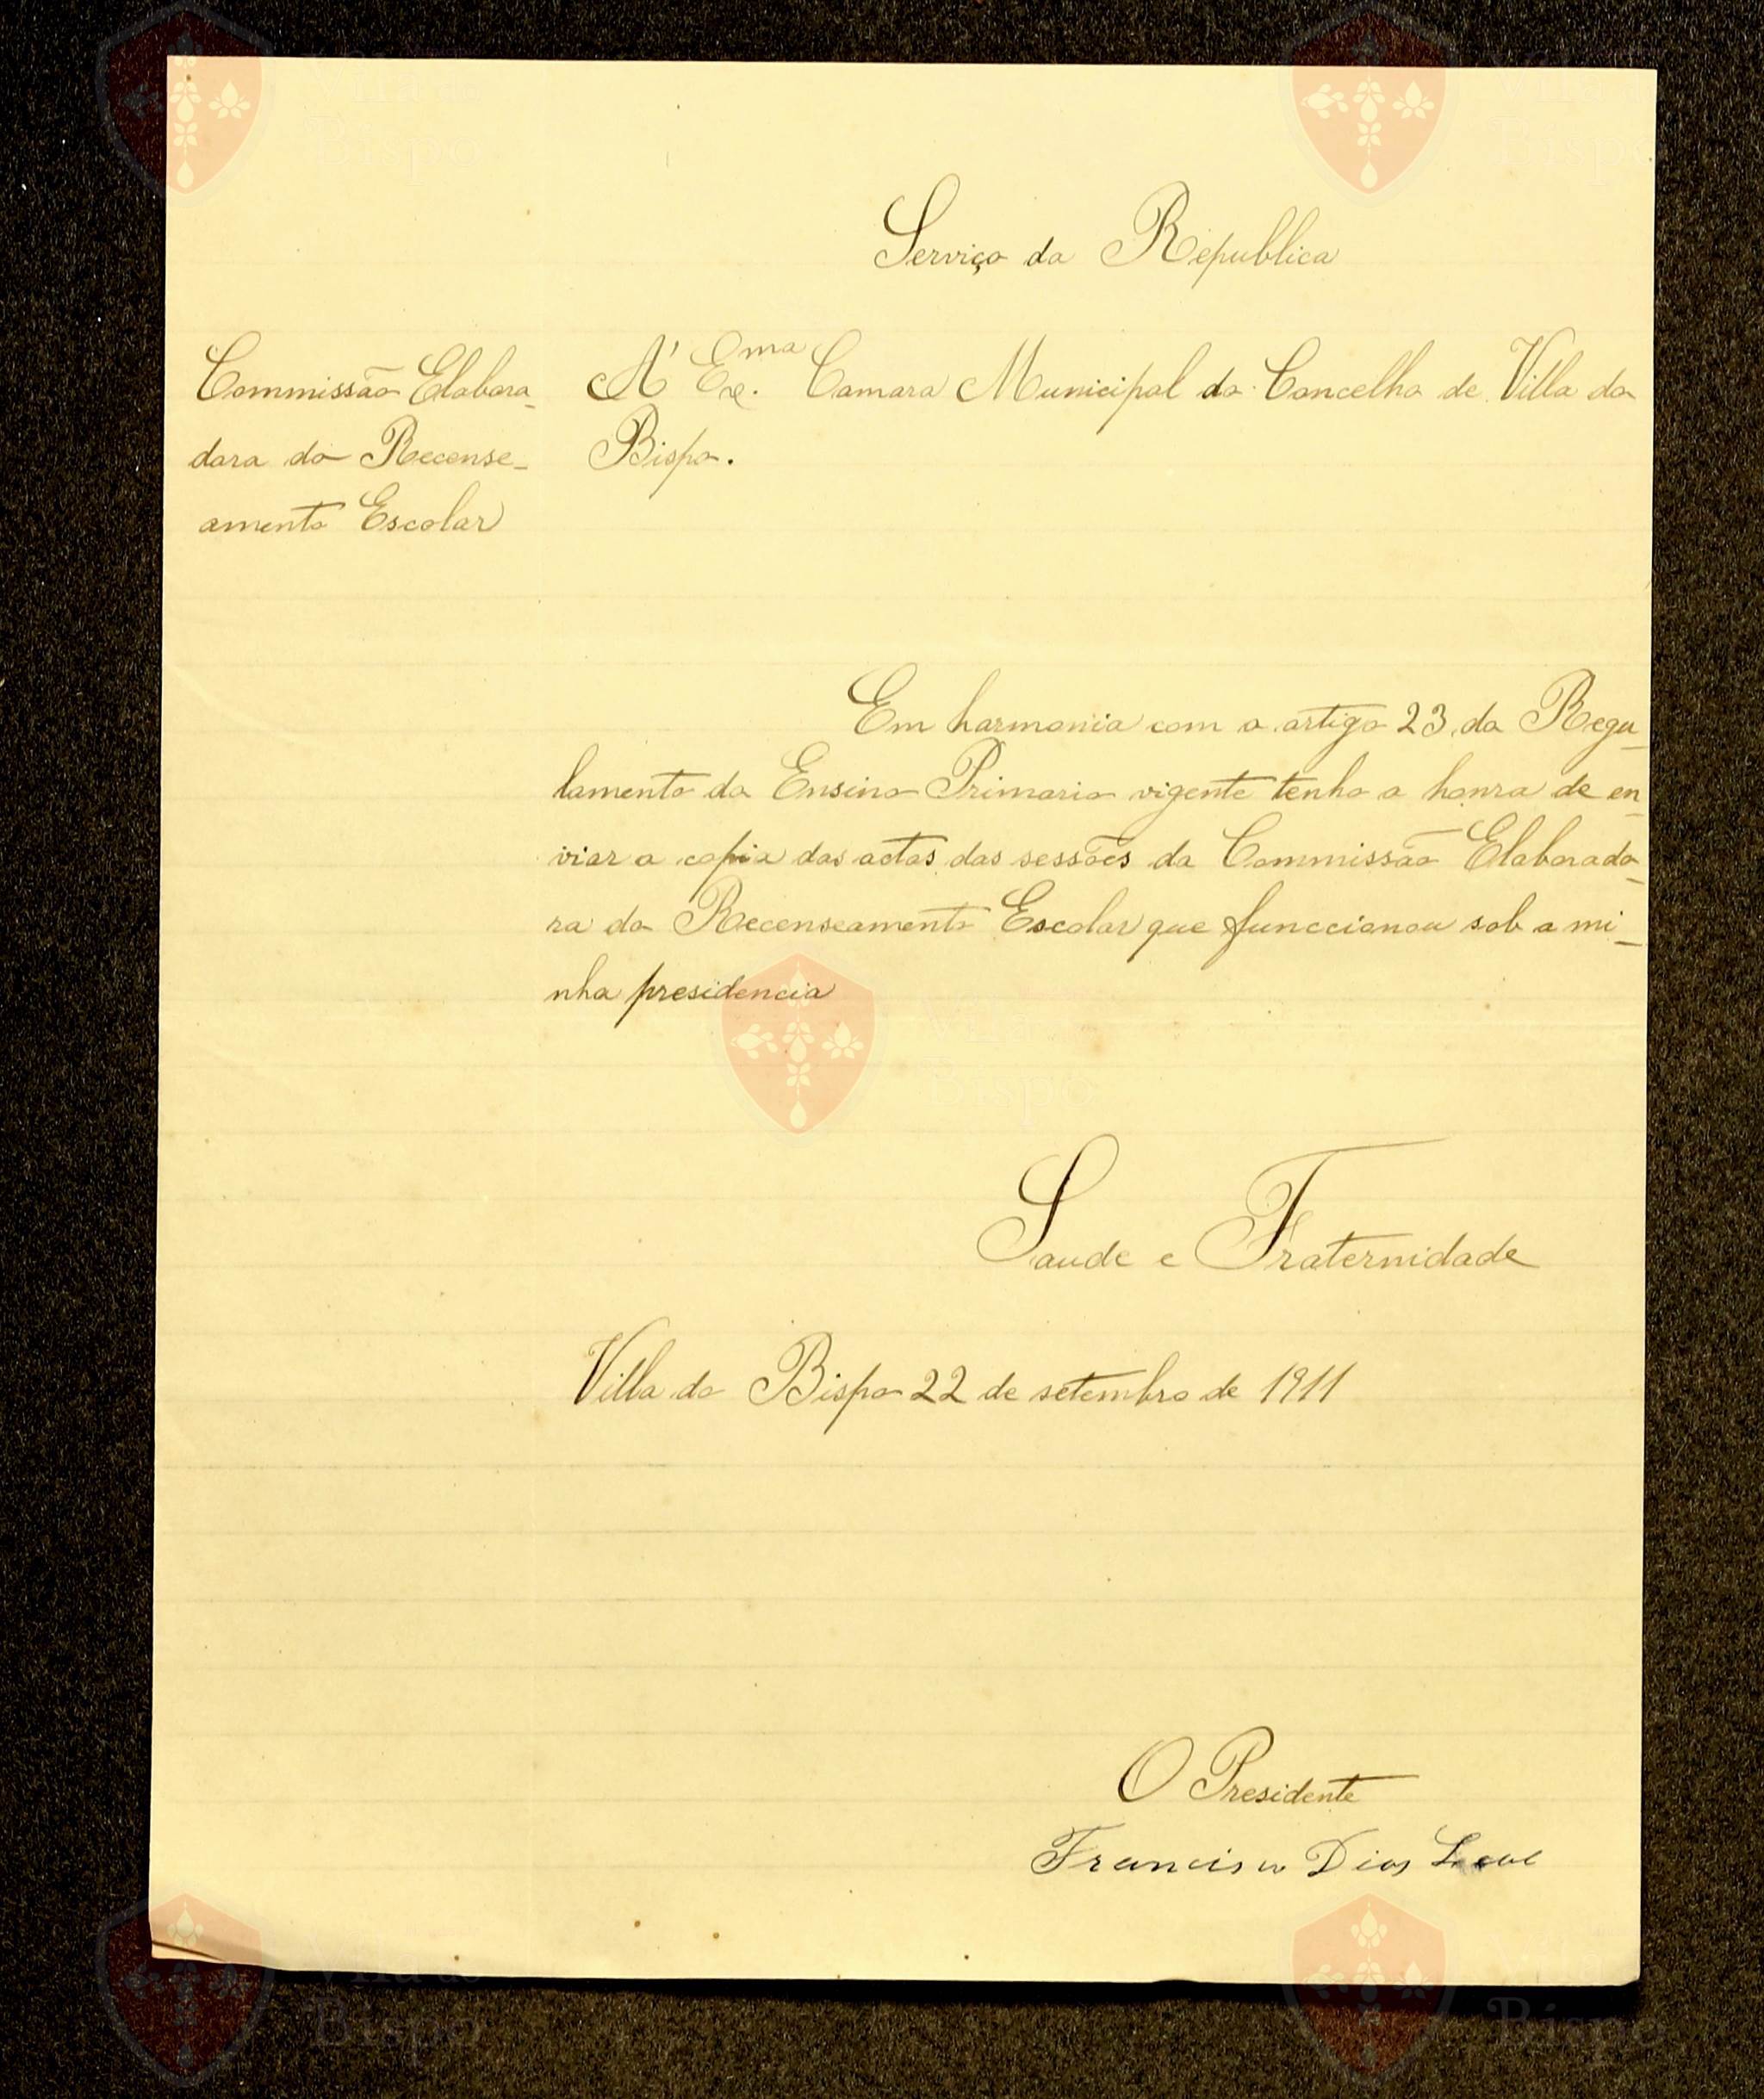 Serviço da Republica
Commissão Elabora-
dora do Recense-
amento Escolar
A' Ex.ma Camara Municipal do Concelho de Villa do
Bispo.
Em harmonia com o artigo 23 do Regu-
lamento do Ensino Primario vigente tenho a honra de en-
viar a copia das actas das sessões da Commissão Elaborado-
ra do Recenseamento Escolar que funccionou sob a mi-
nha presidencia
Saude e Fraternidade
Villa do Bispo 22 de setembro de 1911
O Presidente
Francisco Dias Leal
Vila do
Bispo